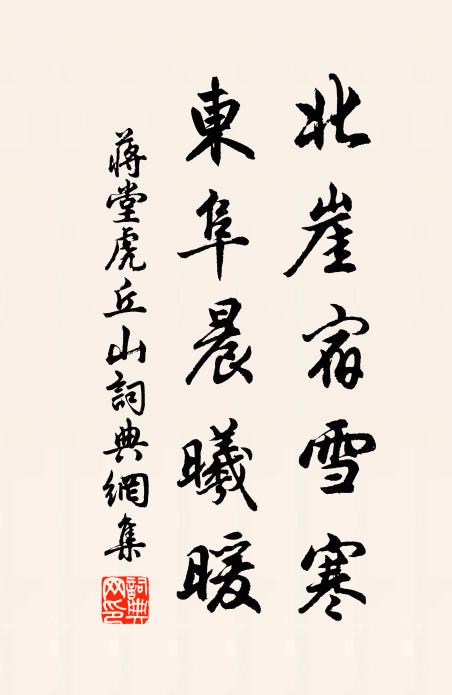 北崖宿雪寒
東阜晨曦暖
蔣堂虎丘山詞典網集
詞典网印